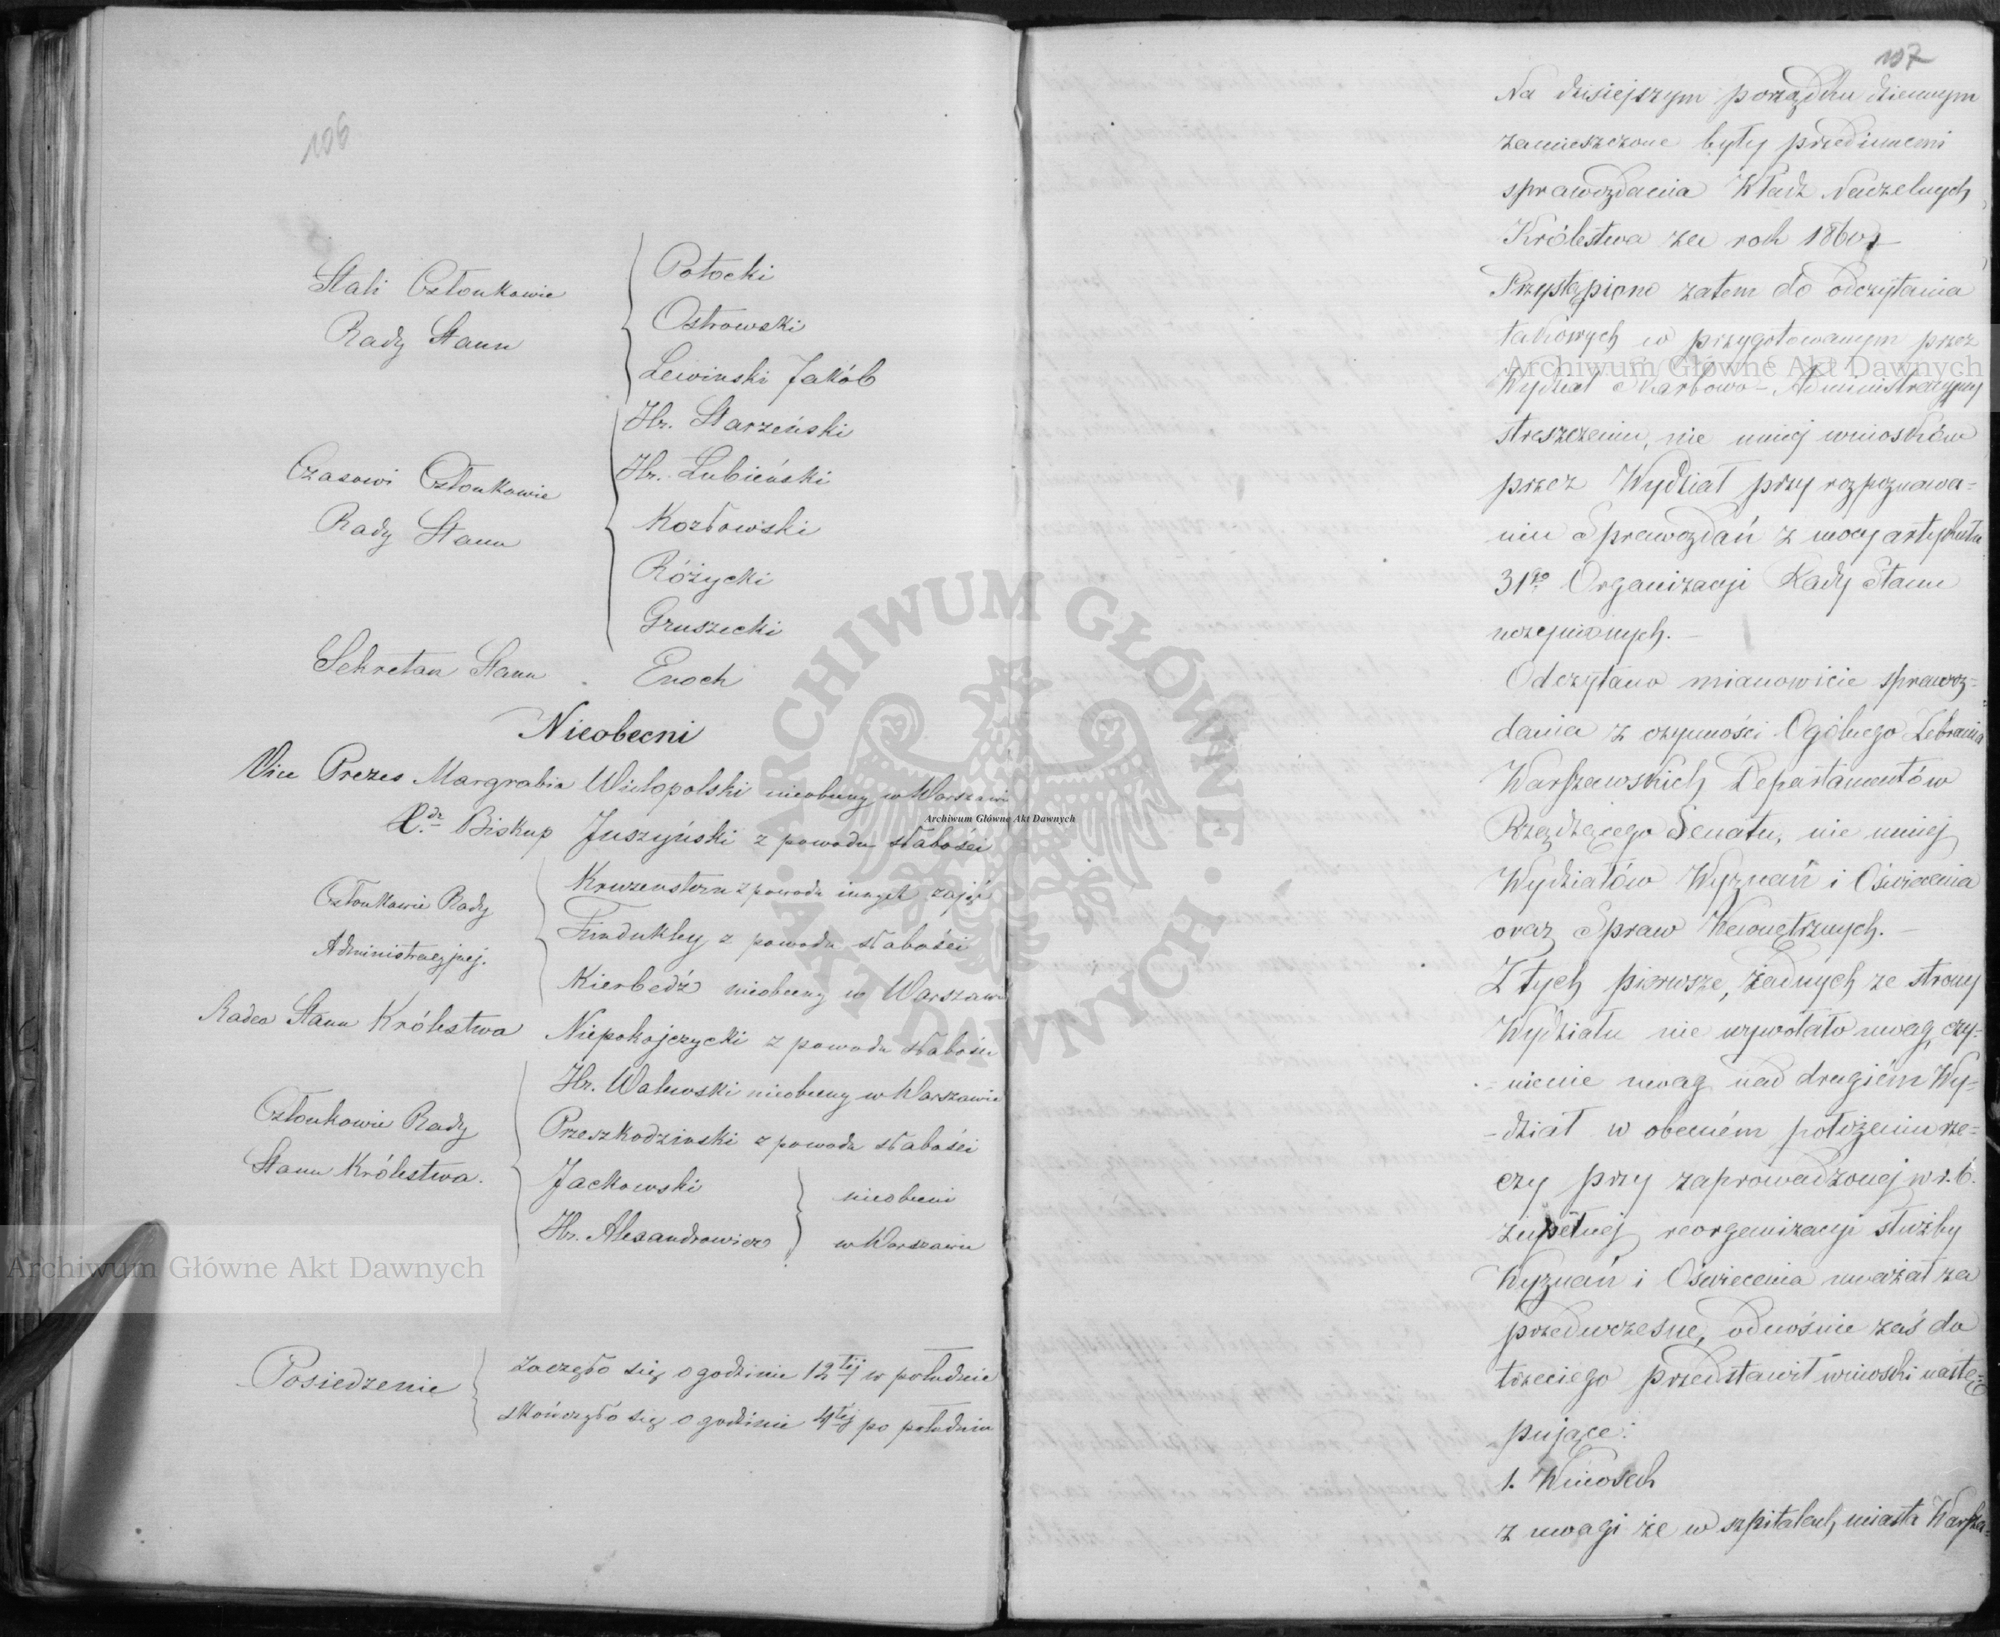 106
Stali Członkowie
Rady Stanu
Potocki
Ostrowski
Lewinski Jakób
Czasowi Członkowie
Rady Stanu
Hr. Starzeński
Hr. Lubieński
Kozłowski
Różycki
Gruszecki
Sekretarz Stanu Enoch
Nieobecni
Vice Prezes Margrabia Wielopolski nieobecny w Warszawie
Biskup Juszyński z powodu słabości
Członkowie Rady
Administracyjnej.
Kruzenstern z powodu innych zajęć
Fundukley z powodu słabości
Kierbedź nieobecny w Warszawie
Radca Stanu Królestwa Niepokojczycki z powodu słabości
Członkowie Rady
Stanu Królestwa.
Hr. Walewski nieobecny w Warszawie
Przeszkodzinski z powodu słabości
Jackowski
Hr. Alexandrowicz
nieobecni
w Warszawie
Posiedzenie
zaczęło się o godzinie 12tej w południe
skończyło się o godzinie 4tej po południu
107
Na dzisiejszym porządku dziennym
zamieszczone były przedmiotami
sprawozdania Władz Naczelnych
Królestwa za rok 1860
Przystąpiono zatem do odczytania
takowych w przygotowanym przez
Wydział Skarbowo-Administracyjny
streszczeniu, nie mniej wniosków
przez Wydział przy rozpoznawa-
niu Sprawozdań z mocy artykułu
31go Organizacji Rady Stanu
uczynionych. —
Odczytano mianowicie sprawoz-
dania z czynności Ogólnego Zebrania
Warszawskich Departamentów
Rządzącego Senatu, nie mniej
Wydziałów Wyznań i Oświecenia
oraz Spraw Wewnętrznych. —
Z tych pierwsze, żadnych ze strony
Wydziału nie wywołało uwag, czy-
nienie uwag nad drugiém Wy-
dział w obecném położeniu rze-
czy przy zaprowadzonej w r. b.
zupełnej reorganizacji służby
Wyznań i Oświecenia uważał za
przedwczesne, odnośnie zaś do
trzeciego przedstawił wnioski nastę-
pujące:
1. Wniosek
z uwagi że w szpitalach miasta Warsza-
Archiwum Główne Akt Dawnych
Archiwum Główne Akt Dawnych
Archiwum Główne Akt Dawnych
ARCHIWUM GŁÓWNE AKT DAWNYCH